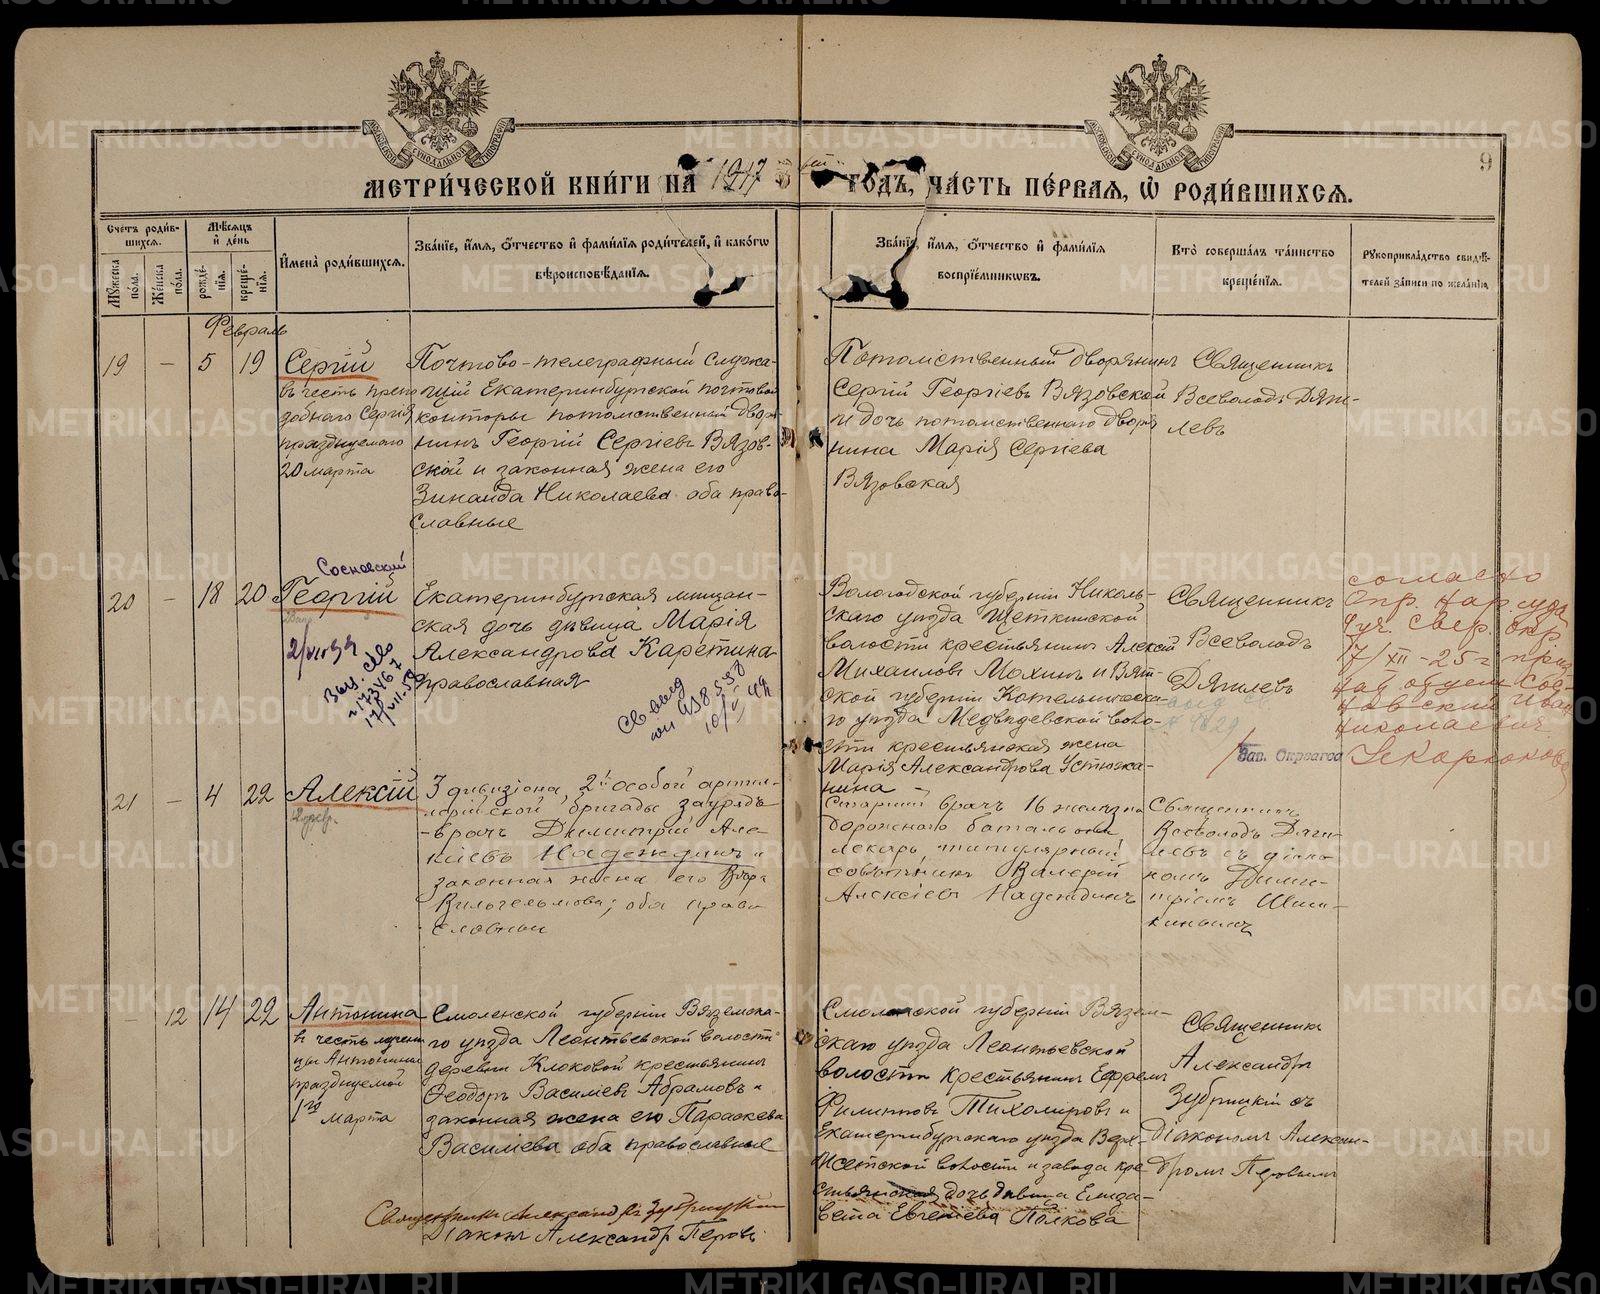 МЕТРИ́ЧЕСКОЙ КНИ́ГИ НА 1917 ГОДЪ, ЧА́СТЬ ПЕ́РВАЯ, Ѡ҆ РОДИ́ВШИХСЯ.
9
Счетъ роди́в-
шихся.
Мѣ́сяцъ
и҆ де́нь
И҆мена̀ роди́вшихся.
Зва́нїе, и҆́мя, ѻ҆́тчество и҆ фами́лїя роди́телей, и҆ како́гѡ
вѣроисповѣ́данїя.
Мꙋ́жеска
по́ла.
Же́нска
по́ла.
рожде́-
нїя.
креще́-
нїя.
Зва́нїе, и҆́мя, ѻ҆́тчество и҆ фами́лїя
воспрїе́мникѡвъ.
Кто̀ соверша́лъ та́инство
креще́нїя.
Рꙋкоприкла́дство свидѣ́-
телей за́писи по жела́нїю
Февраль
19 — 5 19 Сергій
въ честь препо
добнаго Сергія
празднуемаго
20 марта
Почтово-телеграфный служа-
щій Екатеринбургской почтовой
конторы потомственный дворя-
нинъ Георгій Сергіевъ Вязов-
ской и законная жена его
Зинаида Николаева оба право-
славные
Потомственный дворянинъ
Сергій Георгіевъ Вязовской
и дочь потомственнаго дворя
нина Марія Сергіева
Вязовская
Священникъ
Всеволодъ Дяги-
левъ
20 — 18 20 Сосновский
Георгій
2/VII 59
Выд. св-во
17/VII.59
Екатеринбургская мещан-
ская дочь дѣвица Марія
Александрова Каретина
православная
Св выд
10/V 49
Вологодской губерніи Николь-
скаго уѣзда Щеткинской
волости крестьянинъ Алексій
Михаиловъ Мохинъ и Вят-
ской губерніи Котельническа-
го уѣзда Медвѣдевской воло-
сти крестьянская жена
Марія Александрова Устюжа-
нина
Священникъ
Всеволодъ
Дягилевъ
согласно
Опр. Нар. суда
4 уч. Свер. Окр
17/XII-25 г приз
нан отцем Сос-
новский Иван
Николаевич
Зав. Окрзагса
21 — 4 22 Алексій
3 дивизіона, 2й особой артил-
лерійской бригады заурядъ
-врачъ Димитрій Але-
ксіевъ Надеждинъ и
законная жена его Вѣра
Вильгельмова; оба право
славныи
Старшій врачъ 16 желѣзно
дорожнаго баталіона
лекарь титулярный
совѣтникъ Валерій
Алексіевъ Надеждинъ
Священникъ
Всеволодъ Дяги-
левъ съ діако-
номъ Дими-
тріемъ Шиш-
кинымъ
— 12 14 22 Антонина
въ честь мучени
цы Антонины
празднуемой
1го
марта
Смоленской губерніи Вяземска-
го уѣзда Леонтьевской волости
деревни Клоковой крестьянинъ
Ѳеодоръ Васильевъ Абрамовъ и
законная жена его Параскева
Васильева оба православные
Смоленской губерніи Вязем-
скаго уѣзда Леонтьевской
волости крестьянинъ Ефремъ
Филиповъ Тихомировъ и
Екатеринбургскаго уѣзда Верх-
Исетской волости и завода кре
стьянская дочь дѣвица Елиза-
вета Евгеніева Полкова
Священникъ
Александръ
Зубрицкій съ
діакономъ Алексан-
дромъ Перовымъ
Священникъ Александръ Зубрицкій
Діаконъ Александръ Перовъ
METRIKI.GASO-URAL.RU